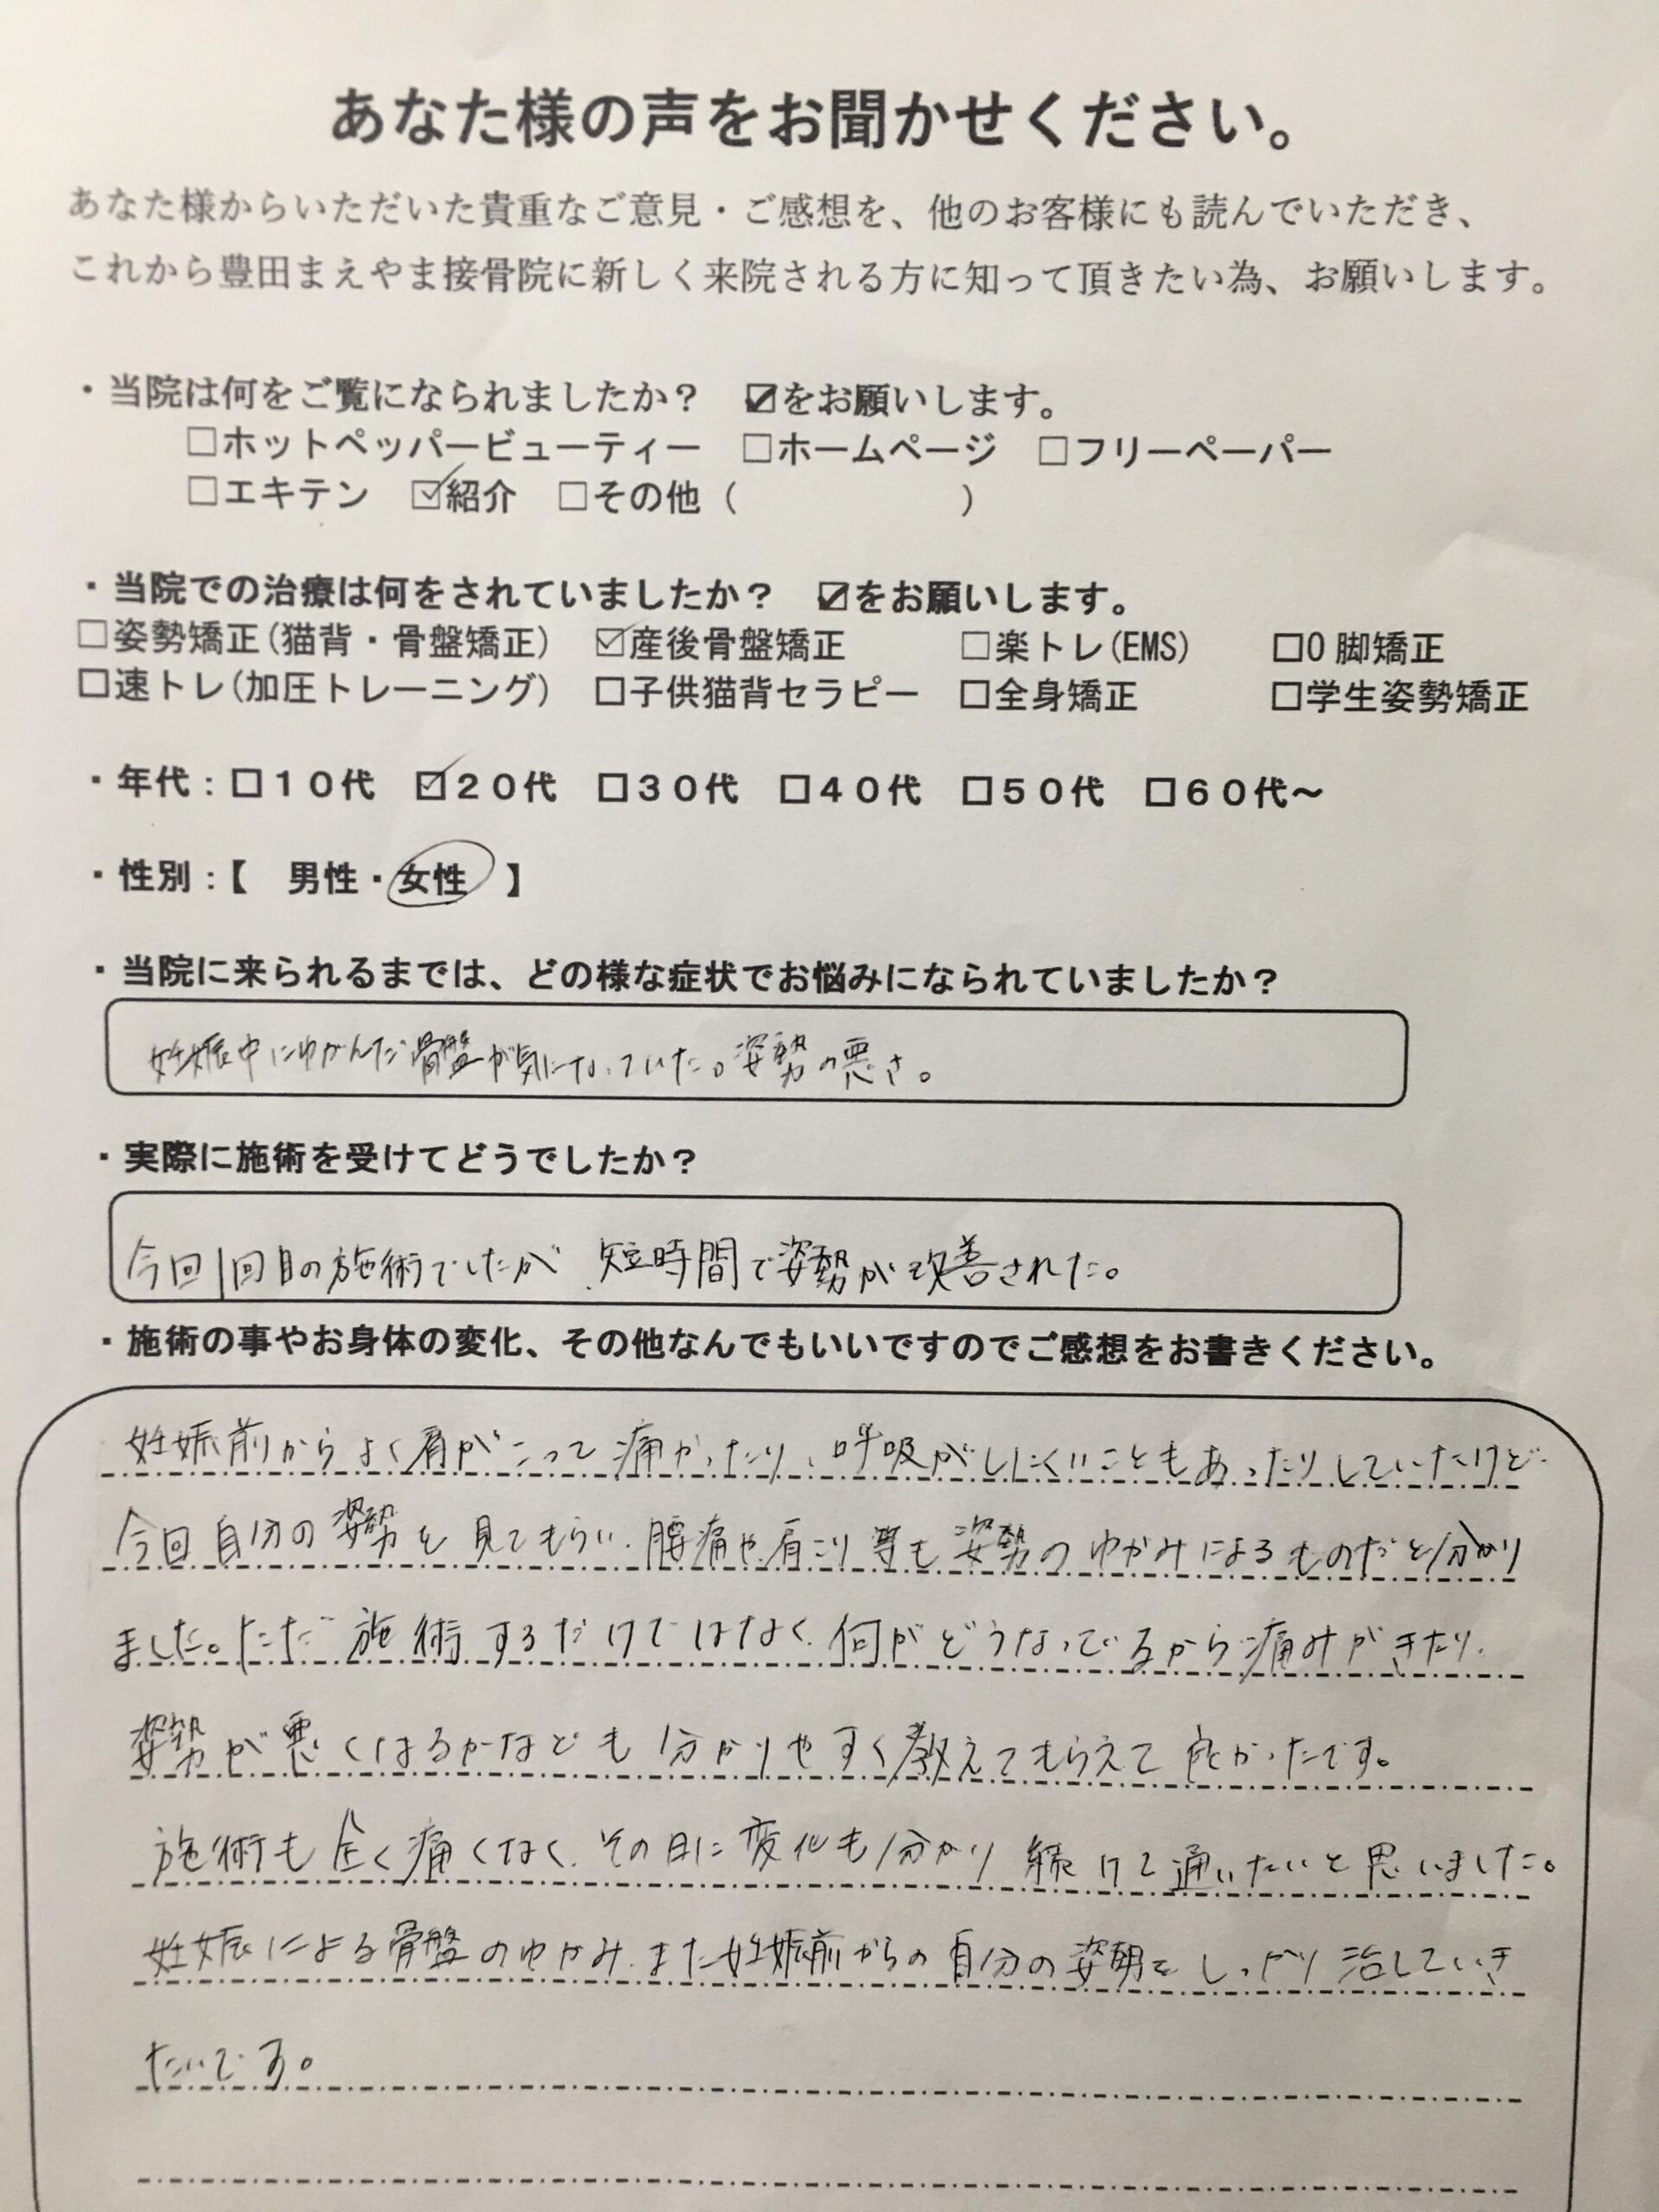 あなた様の声をお聞かせください。
あなた様からいただいた貴重なご意見・ご感想を、他のお客様にも読んでいただき、
これから豊田まえやま接骨院に新しく来院される方に知って頂きたい為、お願いします。
・当院は何をご覧になられましたか？　☑をお願いします。
□ホットペッパービューティー　□ホームページ　□フリーペーパー
□エキテン　☑紹介　□その他（　　　　　　）
・当院での治療は何をされていましたか？　☑をお願いします。
□姿勢矯正(猫背・骨盤矯正)　☑産後骨盤矯正　□楽トレ(EMS)　□O脚矯正
□速トレ(加圧トレーニング)　□子供猫背セラピー　□全身矯正　□学生姿勢矯正
・年代：□１０代　☑２０代　□３０代　□４０代　□５０代　□６０代～
・性別：【　男性・女性　】
・当院に来られるまでは、どの様な症状でお悩みになられていましたか？
妊娠中にゆがんだ骨盤が気になっていた。姿勢の悪さ。
・実際に施術を受けてどうでしたか？
今回1回目の施術でしたが、短時間で姿勢が改善された。
・施術の事やお身体の変化、その他なんでもいいですのでご感想をお書きください。
妊娠前からよく肩がこって痛かったり、呼吸がしにくいこともあったりしていたけど
今回自分の姿勢を見てもらい、腰痛や肩こり等も姿勢のゆがみによるものだと分かり
ました。ただ施術するだけではなく、何がどうなっているから痛みがきたり、
姿勢が悪くなるかなども分かりやすく教えてもらえて良かったです。
施術も全く痛くなく、その日に変化も分かり続けて通いたいと思いました。
妊娠による骨盤のゆがみ、また妊娠前からの自分の姿勢をしっかり治していき
たいです。